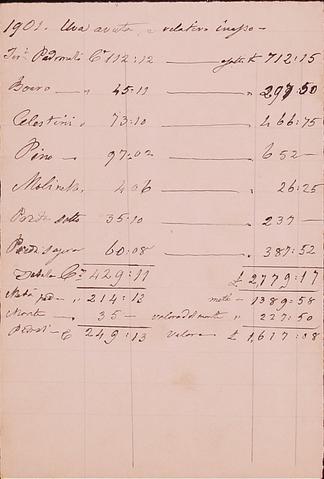 1901. Uva avuta e relativo incasso -
Padronale C. 112:12 — 712:15
Boero — " 45:11 — " 297:50
Celestini " 73:10 — " 466:75
Pino — " 97:02 — " 652 —
Molinetto, 4:06 — " 26:25
sotto 35:10 — " 237 —
60:08 — " 387:52
Totale C. 429:11 £ 2779:17
Metà — " 214:13 metà — 1389:58
Monte " 35 — valore del monte " 227:50
C 249:13 Valore £ 1,617:08